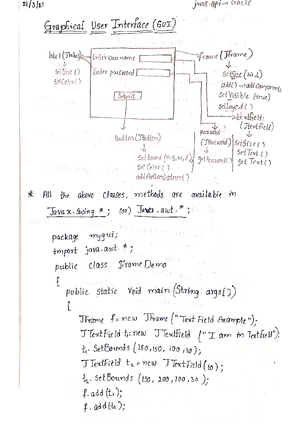 Graphical User Interface (GUI)
label (JLabel)
setSize()
setColor()
Enter username
Enter password
Submit
frame (Jframe)
setSize (w,l)
add()
setVisible (true)
setLayout()
textfield
(JTextfield)
setSize()
setText()
getText()
password
(JPassword)
getPassword()
Button (JButton)
setBound (x,y,w,l)
set Color()
addActionListener()
* All the above classes, methods are available in
Javax.swing *; (or) Java.awt.*;
package mygui;
import java.awt.*;
public class JframeDemo
{
public static void main (String args[])
{
Jframe f=new Jframe ("Text field Example");
JTextField t1=new JTextField ("I am in Textfield");
t1.SetBounds (150,150,100,30);
JTextField t2=new JTextField (10);
t2.setBounds (150,200,100,30);
f.add(t1);
f.add(t2);